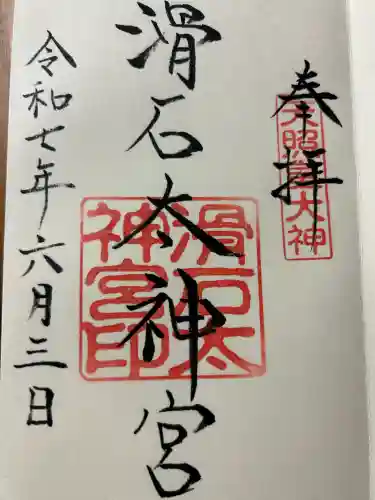 奉拝
天照皇大神
滑石太神宮
滑石太
神宮印
令和七年六月三日